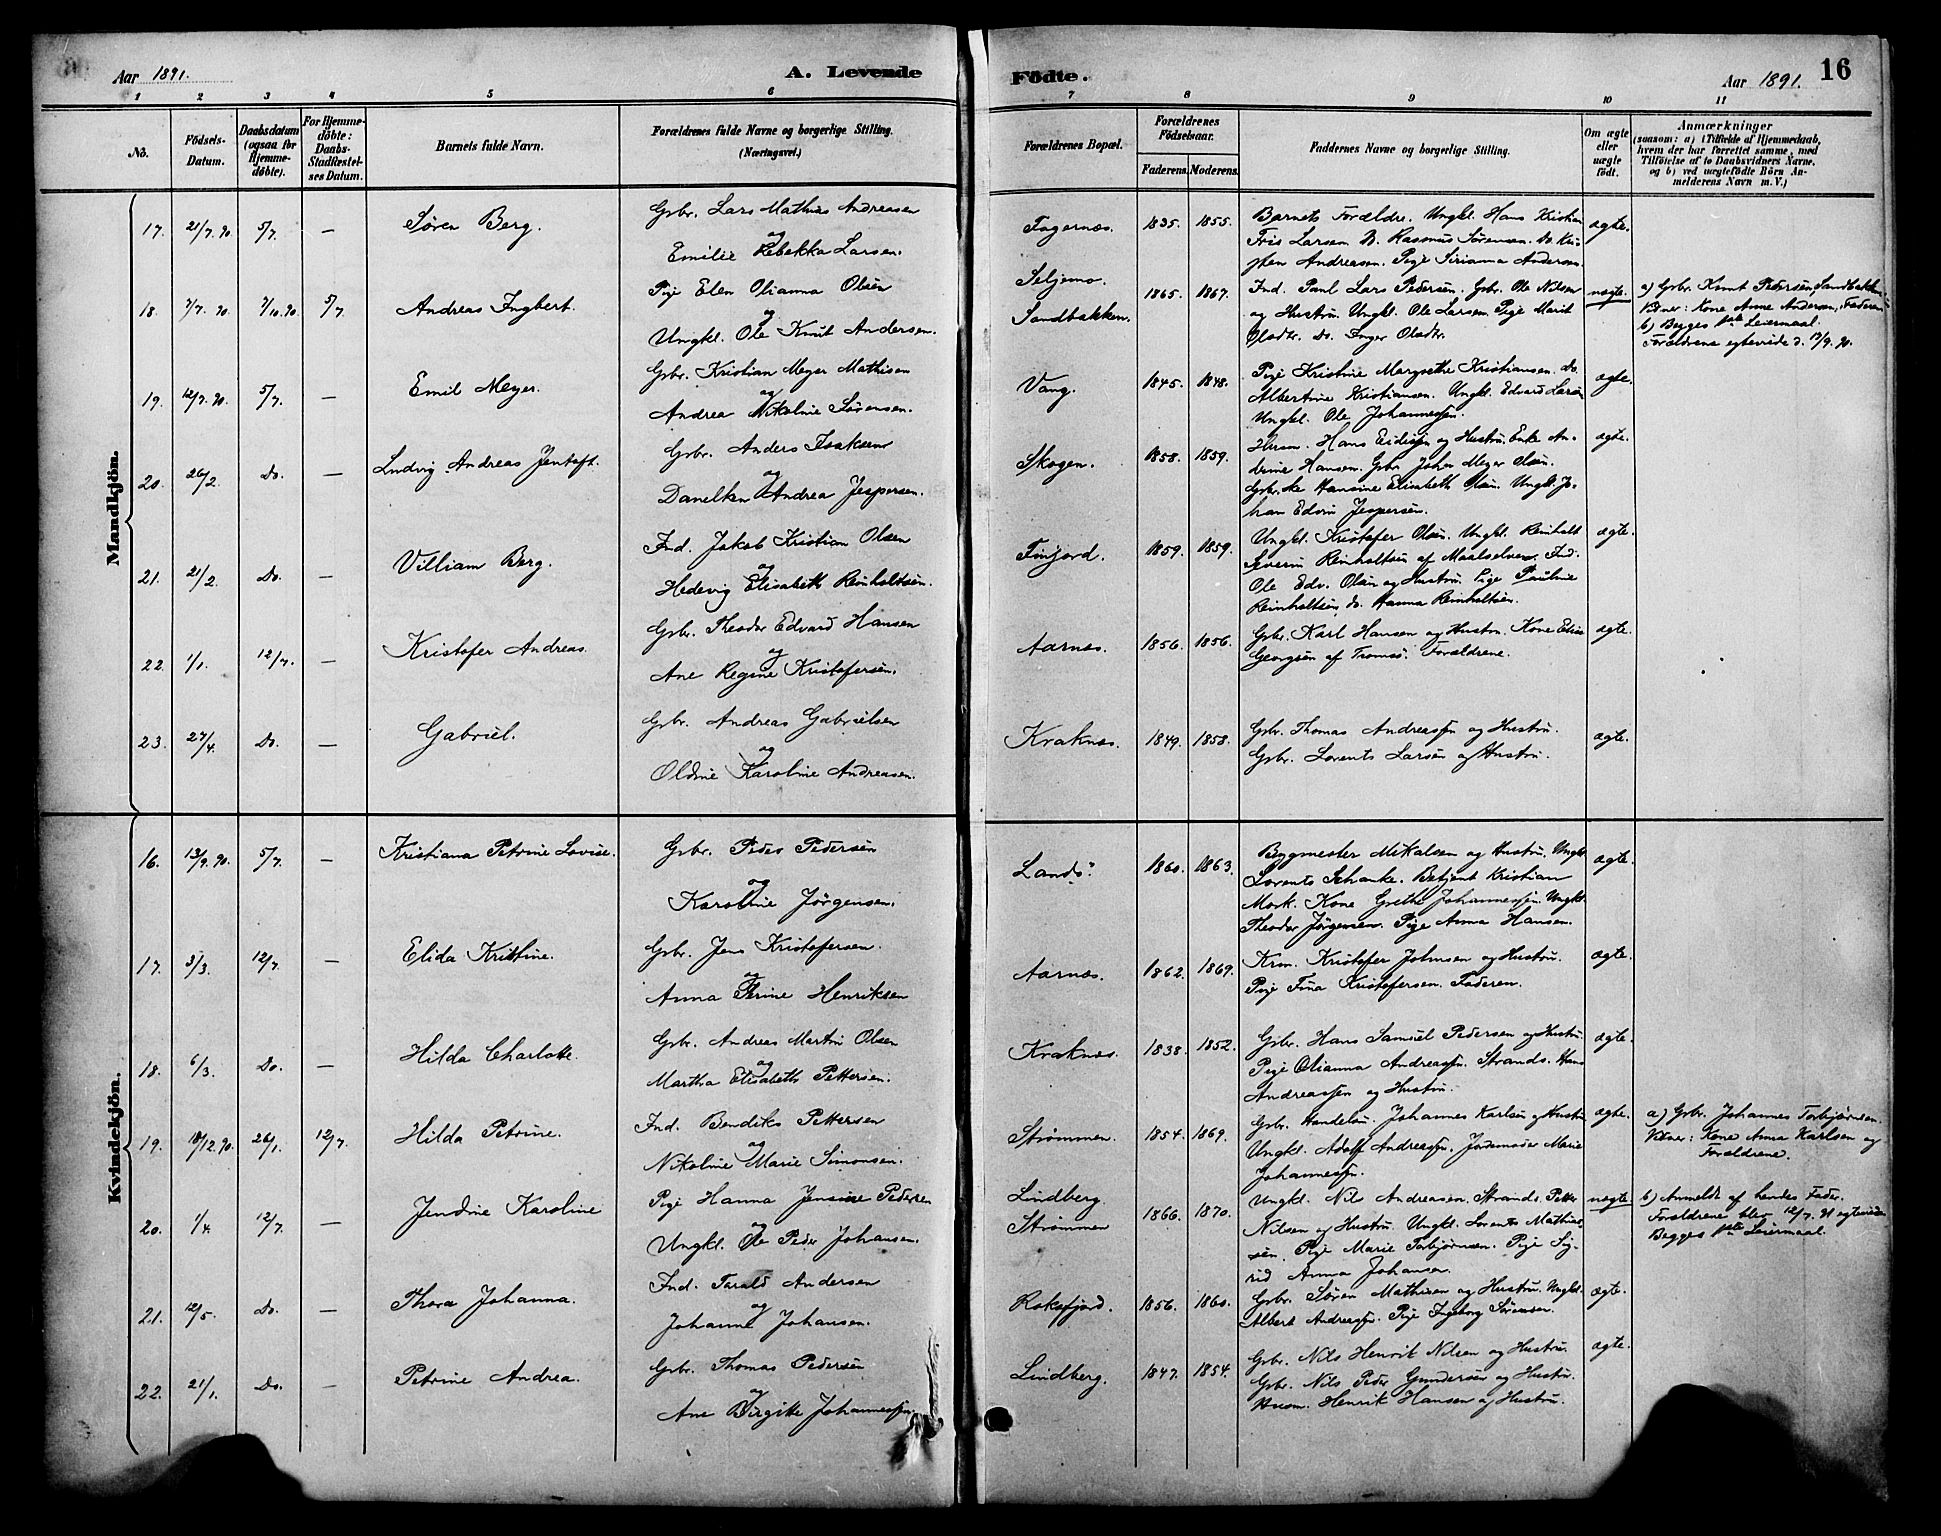 Aar 1891.
A. Levende
Födte.
Aar 1891.
16
1 2 3 4 5 6 7 8 9 10 11
No.
Födsels-Datum.
Daabsdatum (ogsaa for Hjemme-döbte).
For Hjemme-döbte: Daabs-Stadfæstel-ses Datum.
Barnets fulde Navn.
Forældrenes fulde Navne og borgerlige Stilling.
(Næringsvei.)
Forældrenes Bopæl.
Forældrenes Födselsaar.
Faderens. Moderens.
Faddernes Navne og borgerlige Stilling.
Om ægte eller uægte födt.
Anmærkninger
(saasom: a) i Tilfælde af Hjemmedaab,
hvem der har forrettet samme, med
Tilföielse af to Daabsvidners Navne,
og b) ved uægtefödte Börn An-
melderens Navn m. V.)
Mandkjön.
17. 21/7. 90. 5/7. — Søren Berg.
Gbr. Lars Mathias Andreasen
og
Emilie Rebekka Larsen.
Fagernæs. 1835. 1855.
Barnets Forældre. Ungkl. Hans Kristian
Friis Larsen. Rasmus Sørensen. Do. Kri-
sten Andreasen. Pige Siriana Andersen
ægte.
18. 7/7. 90. 7/10. 90. 5/7. Andreas Ingbert.
Pige Elen Olianna Olsen
og
Ungkl. Ole Knut Andersen.
Seljemo.
Sandbakken. 1865. 1867.
Ind. Paul Lars Pedersen. Gbr. Ole Nilsen
og Hustru. Ungkl. Ole Larsen. Pige Marit
Olsdtr. Do. Inger Olsdtr.
uægte.
a) Gbr. Knut Petersen, Sandbakken.
Vidner: Kone Anne Andersen, Faderen.
b) Begges 1ste Leiermaal.
Forældrene egteviede d. 13/9. 90.
19. 12/7. 90. 5/7. — Emil Meyer.
Gbr. Kristian Meyer Mathisen
og
Andrea Nikoline Sørensen.
Vang. 1845. 1848.
Pige Kristine Margrethe Kristiansen. Do.
Albertine Kristiansen. Ungkl. Edvard Larsen
Ungkl. Ole Johannessen.
ægte.
20. 26/2. Do. — Ludvig Andreas Jentoft.
Gbr. Anders Isaksen
og
Andrea Jespersen.
Skogen. 1858. 1859.
Husm. Hans Eidissen og Hustru. Enke An-
drine Hansen. Gbr. Johan Meyer Olsen.
Gbr.ske Hansine Elisabeth Olsen. Ungkl. Jo-
han Edvin Jespersen.
ægte.
21. 21/2. Do. — Villiam Berg.
Ind. Jakob Kristian Olsen
og
Hedevig Elisabeth Reinholtsen.
Finfjord. 1859. 1859.
Ungkl. Kristofer Olsen. Ungkl. Reinholt
Severin Reinholtsen af Maalselven. Ind.
Ole Edv. Olsen og Hustru. Pige Pauline
Reinholtsen, do. Hanna Reinholtsen.
ægte.
22. 1/1. 12/7. — Kristofer Andreas.
Gbr. Theodor Edvard Hansen
og
Ane Regine Kristofersen.
Aarnes. 1856. 1856.
Gbr. Karl Hansen og Hustru. Kone Elise
Georgsen af Tromsø. Forældrene.
ægte.
23. 27/4. Do. — Gabriel.
Gbr. Andreas Gabrielsen
og
Oldine Karoline Andreasen.
Kraknes. 1849. 1858.
Gbr. Thomas Andreassen og Hustru.
Gbr. Lorents Larsen og Hustru.
ægte.
Kvindekjön.
16. 13/9. 90. 5/7. — Kristiana Petrine Lovise.
Gbr. Peder Pedersen
og
Karoline Jørgensen.
Landø. 1860. 1863.
Bygmester Mikalsen og Hustru. Ungkl.
Lorents Schanke. Betjent Kristian
Mork. Kone Grethe Johannessen. Ungkl.
Theodor Jørgensen. Pige Anna Hansen.
ægte.
17. 3/3. 12/7. — Elida Kristine.
Gbr. Jens Kristofersen.
og
Anna Henriksen
Aarnæs. 1862. 1869.
Krm. Kristofer Johnsen og Hustru.
Pige Tina Kristofersen. Faderen.
ægte.
18. 6/3. Do. — Hilda Charlotte.
Gbr. Andreas Martin Olsen
og
Martha Elisabeth Pettersen.
Kraknæs. 1838. 1852.
Gbr. Hans Samuel Pedersen og Hustru
Pige Olianna Andreassen. Strands. Hans
Andreassen og Hustru.
ægte.
19. 18/12. 90. 26/1. 12/7. Hilda Petrine.
Ind. Bendiks Pettersen
og
Nikoline Marie Simonsen.
Strømmen. 1854. 1869.
Gbr. Handelsm. Johannes Karlsen og Hustru
Ungkl. Adolf Andreassen. Jordemoder Marie
Johannessen.
ægte.
a) Gbr. Johannes Torbjørnsen.
Vidner: Kone Anna Karlsen og
Forældrene.
20. 1/4. 12/7. — Jendine Karoline
Pige Hanna Jensine Pedersen
og
Ungkl. Ole Peder Johansen.
Lindberg.
Strømmen 1866. 1870.
Ungkl. Nils Andreasen. Strands. Petter
Nilsen og Hustru. Ungkl. Lorents Mathias-
sen. Pige Marie Torbjørnsen. Pige Sig-
rid Anna Johansen.
uægte.
b) Anmeldt af hendes Fader.
Forældrene blev 12/7. 91 egteviede
Begges 1ste Leiermaal.
21. 12/5. Do. — Thora Johanna.
Ind. Tarald Andersen
og
Johanne Johansen.
Roksfjord. 1856. 1860.
Gbr. Søren Mathisen og Hustru. Ungkl.
Albert Andreassen. Pige Ingeborg Sørensen.
ægte.
22. 21/1. Do. — Petrine Andrea.
Gbr. Thomas Pedersen
og
Ane Birgitte Johannessen.
Lindberg. 1847. 1854.
Gbr. Nils Henrik Nilsen og Hustru.
Gbr. Nils Peder Gundersen og Hustru.
Husm. Henrik Hansen og Hustru.
ægte.